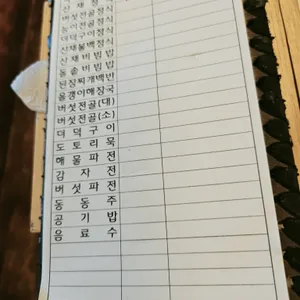 산채정식
버섯전골정식
능이전골정식
더덕구이정식
산채불백정식
산채비빔밥
돌솥비빔밥
된장찌개백반
올갱이해장국
버섯전골(대)
버섯전골(소)
더덕구이
도토리묵
해물파전
감자전
버섯파전
동동주
공기밥
음료수